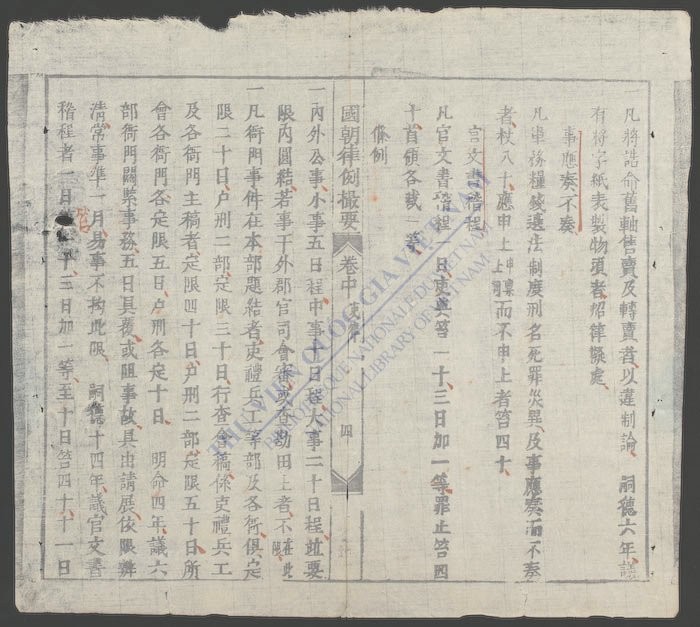 一凡將誥命舊軸售賣及轉賣者以違制論 嗣德六年議
有將字紙表製物項者照律議處
事應奏不奏
凡軍務糧錢選注制度刑名死罪災異及事應奏而不奏
者杖八十應申上而不申上者笞四十
官文書稽程
凡官文書稽程一日吏典笞一十三日加一等罪止笞四
十首領各減一等
條例
國朝律例撮要 卷中 吏律 四
一內外公事小事五日程中事十日程大事二十日程並要
限內圓結若事干外郡官司會審或查勘田土者不在此限
一凡衙門事件在本部題結者吏禮兵工等部及各衙俱定
限二十日戶刑二部定限三十日行查會稿係吏禮兵工
及各衙門主稿者定限四十日戶刑二部定限五十日所
會各衙門各定限五日戶刑各定十日 明命四年議六
部衙門關緊事務五日具覆或阻事故具出請展依限辦
清常事準一月易事不拘此限 嗣德十四年議官文書
稽程者一日笞十三日加一等至十日笞四十十一日
THƯ VIỆN QUỐC GIA VIỆT NAM
BIBLIOTHEQUE NATIONALE DU VIETNAM
NATIONAL LIBRARY OF VIETNAM